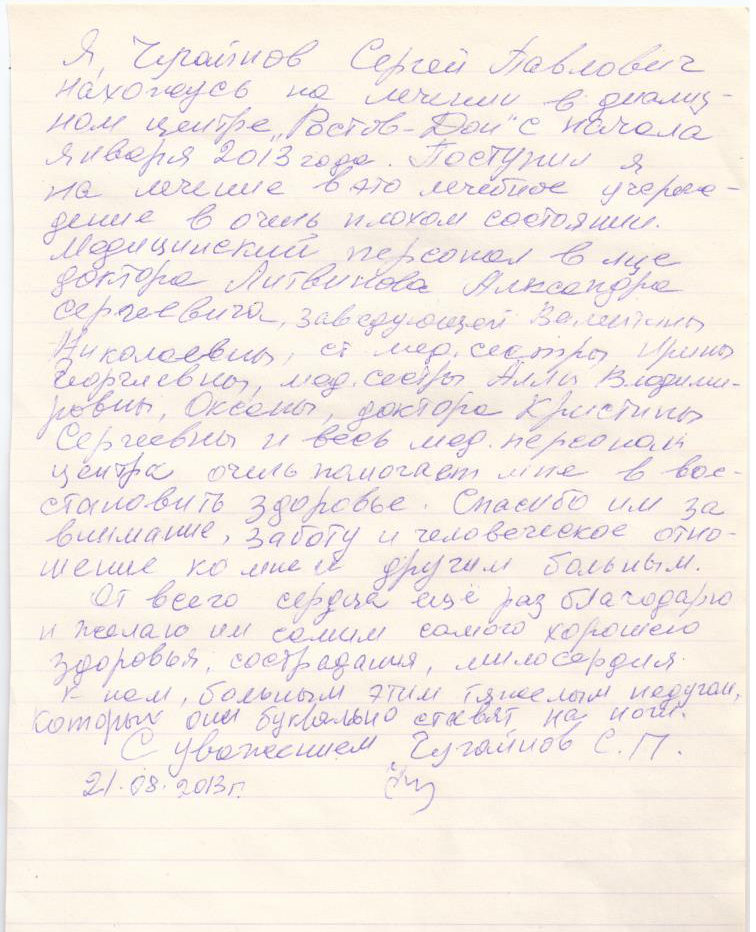 Я, Чугайнов Сергей Павлович
нахожусь на лечении в диализ-
ном центре „Ростов-Дон" с начала
января 2013 года. Поступил я
на лечение в это лечебное учереж-
дение в очень плохом состоянии.
Медицинский персонал в лице
доктора Литвинова Александра
Сергеевича, заведующей Валентины
Николаевны, ст. мед. сестры Ирины
Георгиевны, мед. сестры Аллы Владими-
ровны, Оксаны, доктора Кристины
Сергеевны и весь мед. персонал
центра очень помогает мне в вос-
становить здоровье. Спасибо им за
внимание, заботу и человеческое отно-
шение ко мне и другим больным.
От всего сердца ещё раз благодарю
и желаю им самим самого хорошего
здоровья, сострадания, милосердия
к нам, больным этим тяжелым недугом,
которых они буквально ставят на ноги.
С уважением Чугайнов С. П.
21.08.2013 г.